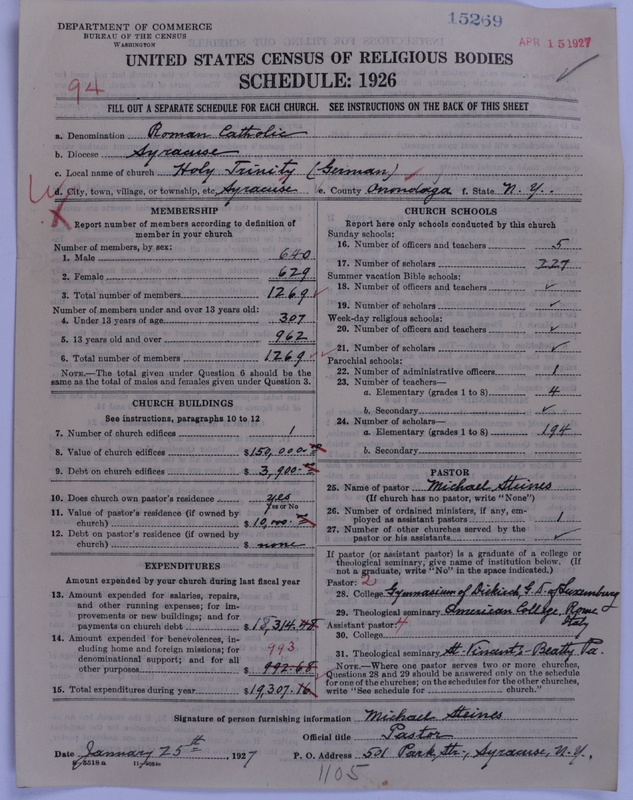 15269
APR 15 1927
DEPARTMENT OF COMMERCE
BUREAU OF THE CENSUS
WASHINGTON
UNITED STATES CENSUS OF RELIGIOUS BODIES
SCHEDULE: 1926
94
FILL OUT A SEPARATE SCHEDULE FOR EACH CHURCH. SEE INSTRUCTIONS ON THE BACK OF THIS SHEET
a. Denomination Roman Catholic
b. Diocese Syracuse
c. Local name of church Holy Trinity (German)
d. City, town, village, or township, etc. Syracuse e. County Onondaga f. State N. Y.
MEMBERSHIP
Report number of members according to definition of
member in your church
Number of members, by sex:
1. Male 640
2. Female 629
3. Total number of members 1269
Number of members under and over 13 years old:
4. Under 13 years of age 307
5. 13 years old and over 962
6. Total number of members 1269
NOTE.—The total given under Question 6 should be
same as the total of males and females given under Question 3.
CHURCH BUILDINGS
See instructions, paragraphs 10 to 12
7. Number of church edifices 1
8. Value of church edifices $150,000.
9. Debt on church edifices $ 3,900.
10. Does church own pastor's residence yes
Yes or No
11. Value of pastor's residence (if owned by
church) $ 10,000.
12. Debt on pastor's residence (if owned by
church) $ none
EXPENDITURES
Amount expended by your church during last fiscal year
13. Amount expended for salaries, repairs,
and other running expenses; for im-
provements or new buildings; and for
payments on church debt $18,314.48
14. Amount expended for benevolences, in-
cluding home and foreign missions; for
denominational support; and for all
other purposes $ 992.68
993
15. Total expenditures during year $19,307.16
CHURCH SCHOOLS
Report here only schools conducted by this church
Sunday schools:
16. Number of officers and teachers 5
17. Number of scholars 227
Summer vacation Bible schools:
18. Number of officers and teachers ✓
19. Number of scholars ✓
Week-day religious schools:
20. Number of officers and teachers ✓
21. Number of scholars ✓
Parochial schools:
22. Number of administrative officers 1
23. Number of teachers—
a. Elementary (grades 1 to 8) 4
b. Secondary ✓
24. Number of scholars—
a. Elementary (grades 1 to 8) 194
b. Secondary
PASTOR
25. Name of pastor Michael Steines
(If church has no pastor, write "None")
26. Number of ordained ministers, if any, em-
ployed as assistant pastors 1
27. Number of other churches served by the
pastor or his assistants ✓
If pastor (or assistant pastor) is a graduate of a college or
theological seminary, give name of institution below. (If
not a graduate, write "No" in the space indicated.)
Pastor: 2
28. College Gymnasium of Diekirch, G. D. of Luxemburg
29. Theological seminary American College, Rome
Italy
Assistant pastor: 4
30. College
31. Theological seminary St. Vincent's - Beatty Pa.
NOTE.—Where one pastor serves two or more churches,
Questions 28 and 29 should be answered only on the schedule
for one of the churches; on the schedules for the other churches,
write "See schedule for church."
Signature of person furnishing information Michael Steines
Official title Pastor
Date January 25th, 1927 P. O. Address 501 Park Str., Syracuse, N. Y.,
1105